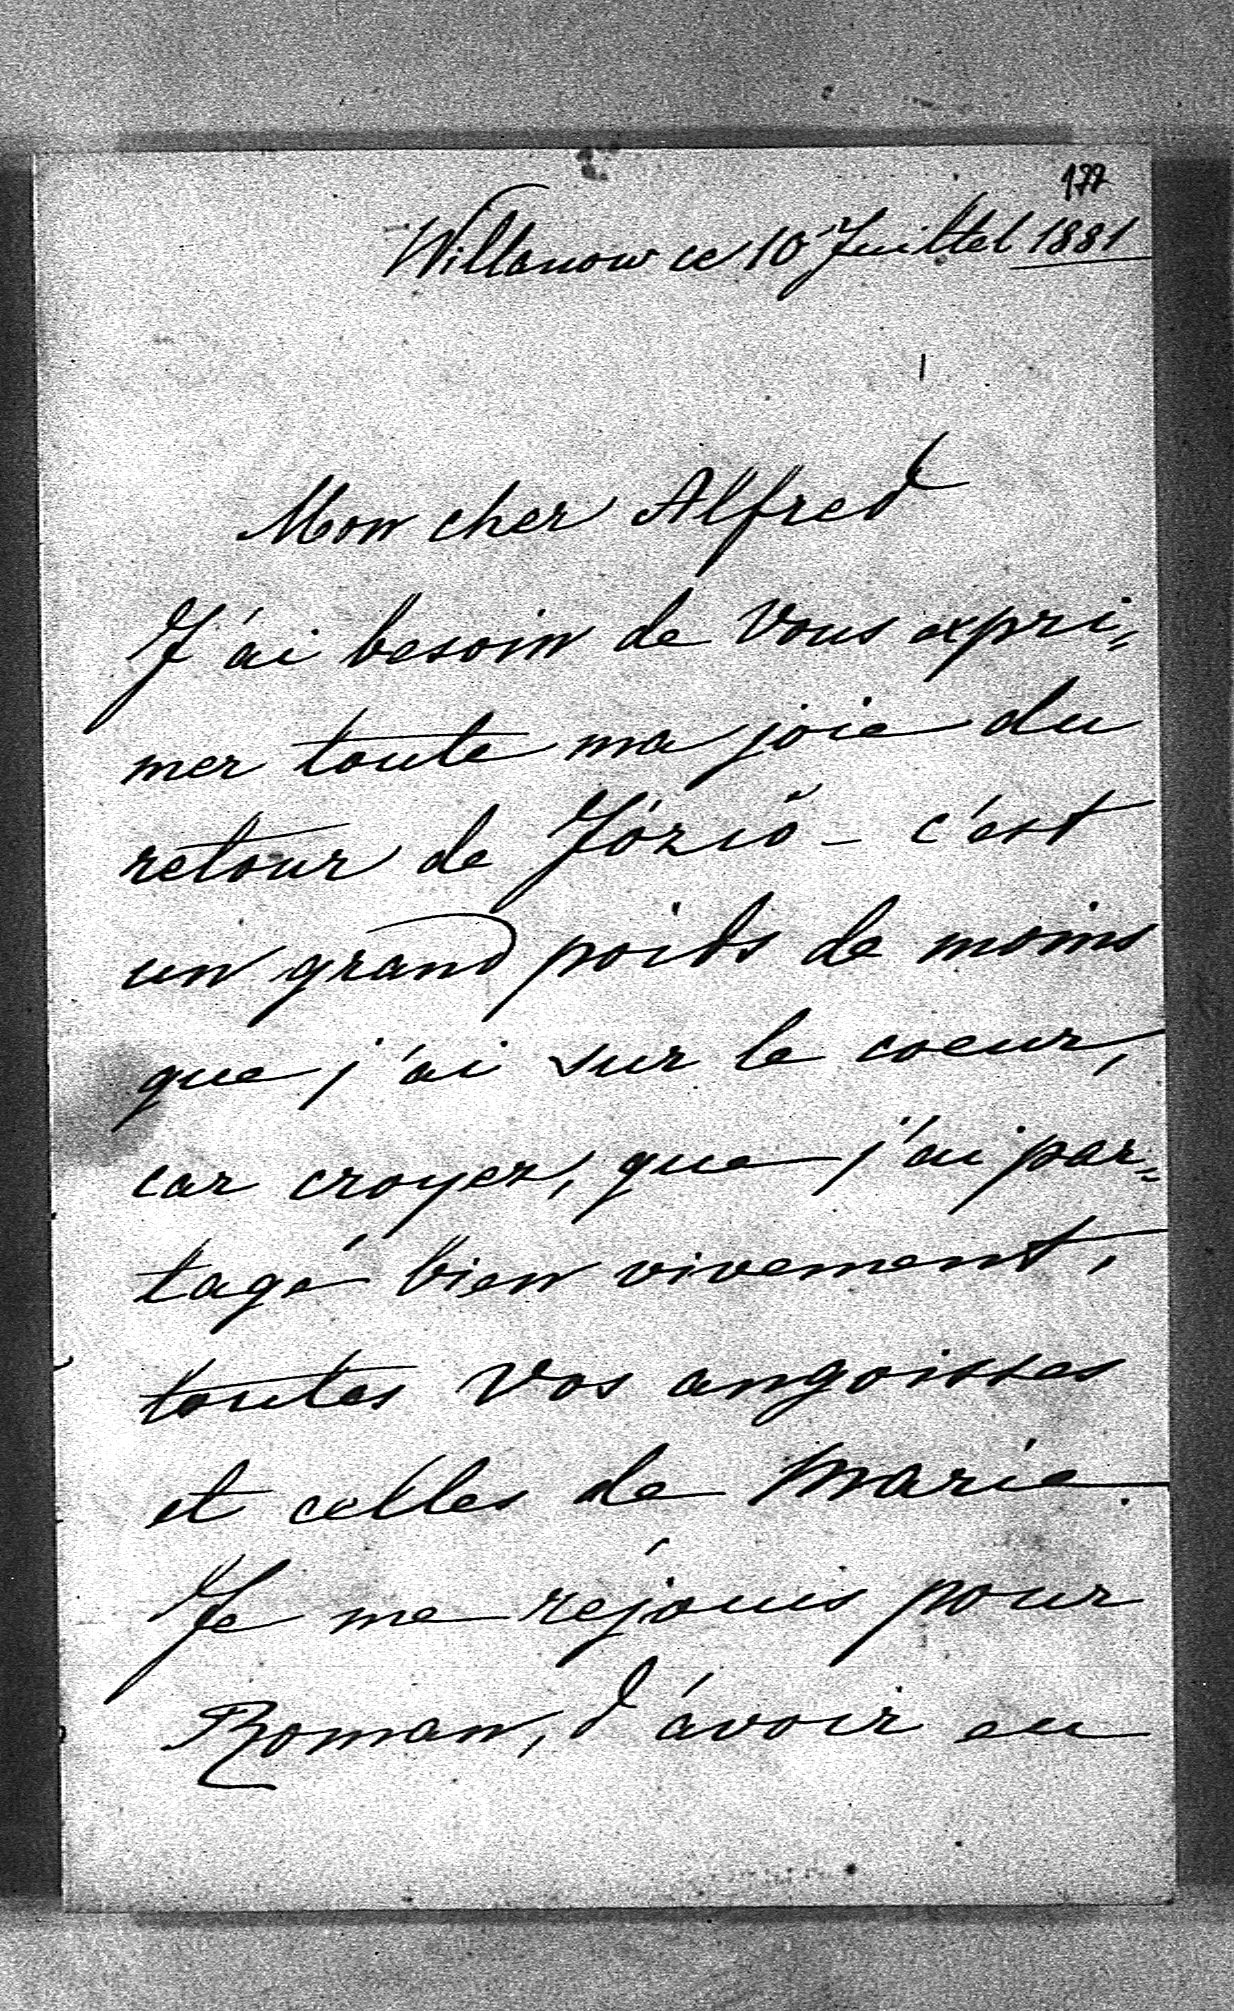 177
Willanow ce 10 Juillet 1881
Mon cher Alfred
J'ai besoin de Vous expri=
mer toute ma joie du
retour de Józió - c'est
un grand poids de moins
que j'ai sur le coeur,
car croyez, que j'ai par=
tagé bien vivement,
toutes Vos angoisses
et celles de Marie.
Je me réjouis pour
Roman, d'avoir eu